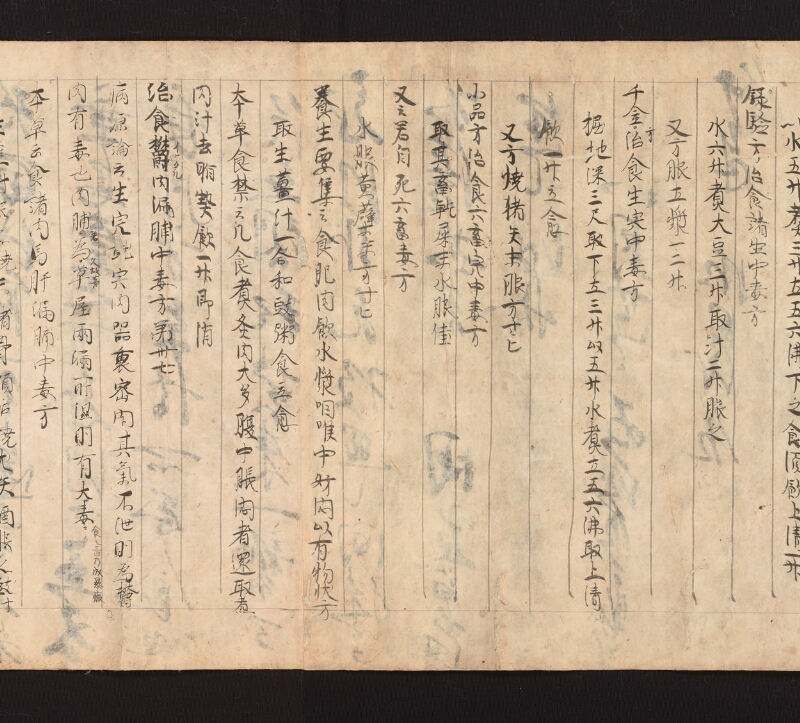 以水五升煮三升土五六沸下之食頃飲上清一升
録驗方治食諸生中毒方
水六升煮大豆三升取汁二升服之
又方服土漿一二升
千金方治食生宍中毒方
掘地深三尺取下土三升以五升水煮土五六沸取上清
飲一升立愈
又方燒猪矢末服方寸匕
小品方治食六畜宍中毒方
取其畜乾屎末水服佳
又云若自死六畜毒方
水服黄蘗末方寸匕
養生要集云食肥肉飲水漿咽喉中妨内以有物状方
取生薑汁一合和豉粥食立愈
本草食禁云凡食煮炙肉大多腹中脹悶者還取煮
肉汁去脂熱飲一升即消
治食欝肉漏脯中毒方第卅七
病源論云生宍熟宍内器裏密閉其氣不泄則為欝
肉有毒也肉脯為草屋雨漏所濕則有大毒
本草云食諸肉馬肝漏脯中毒方